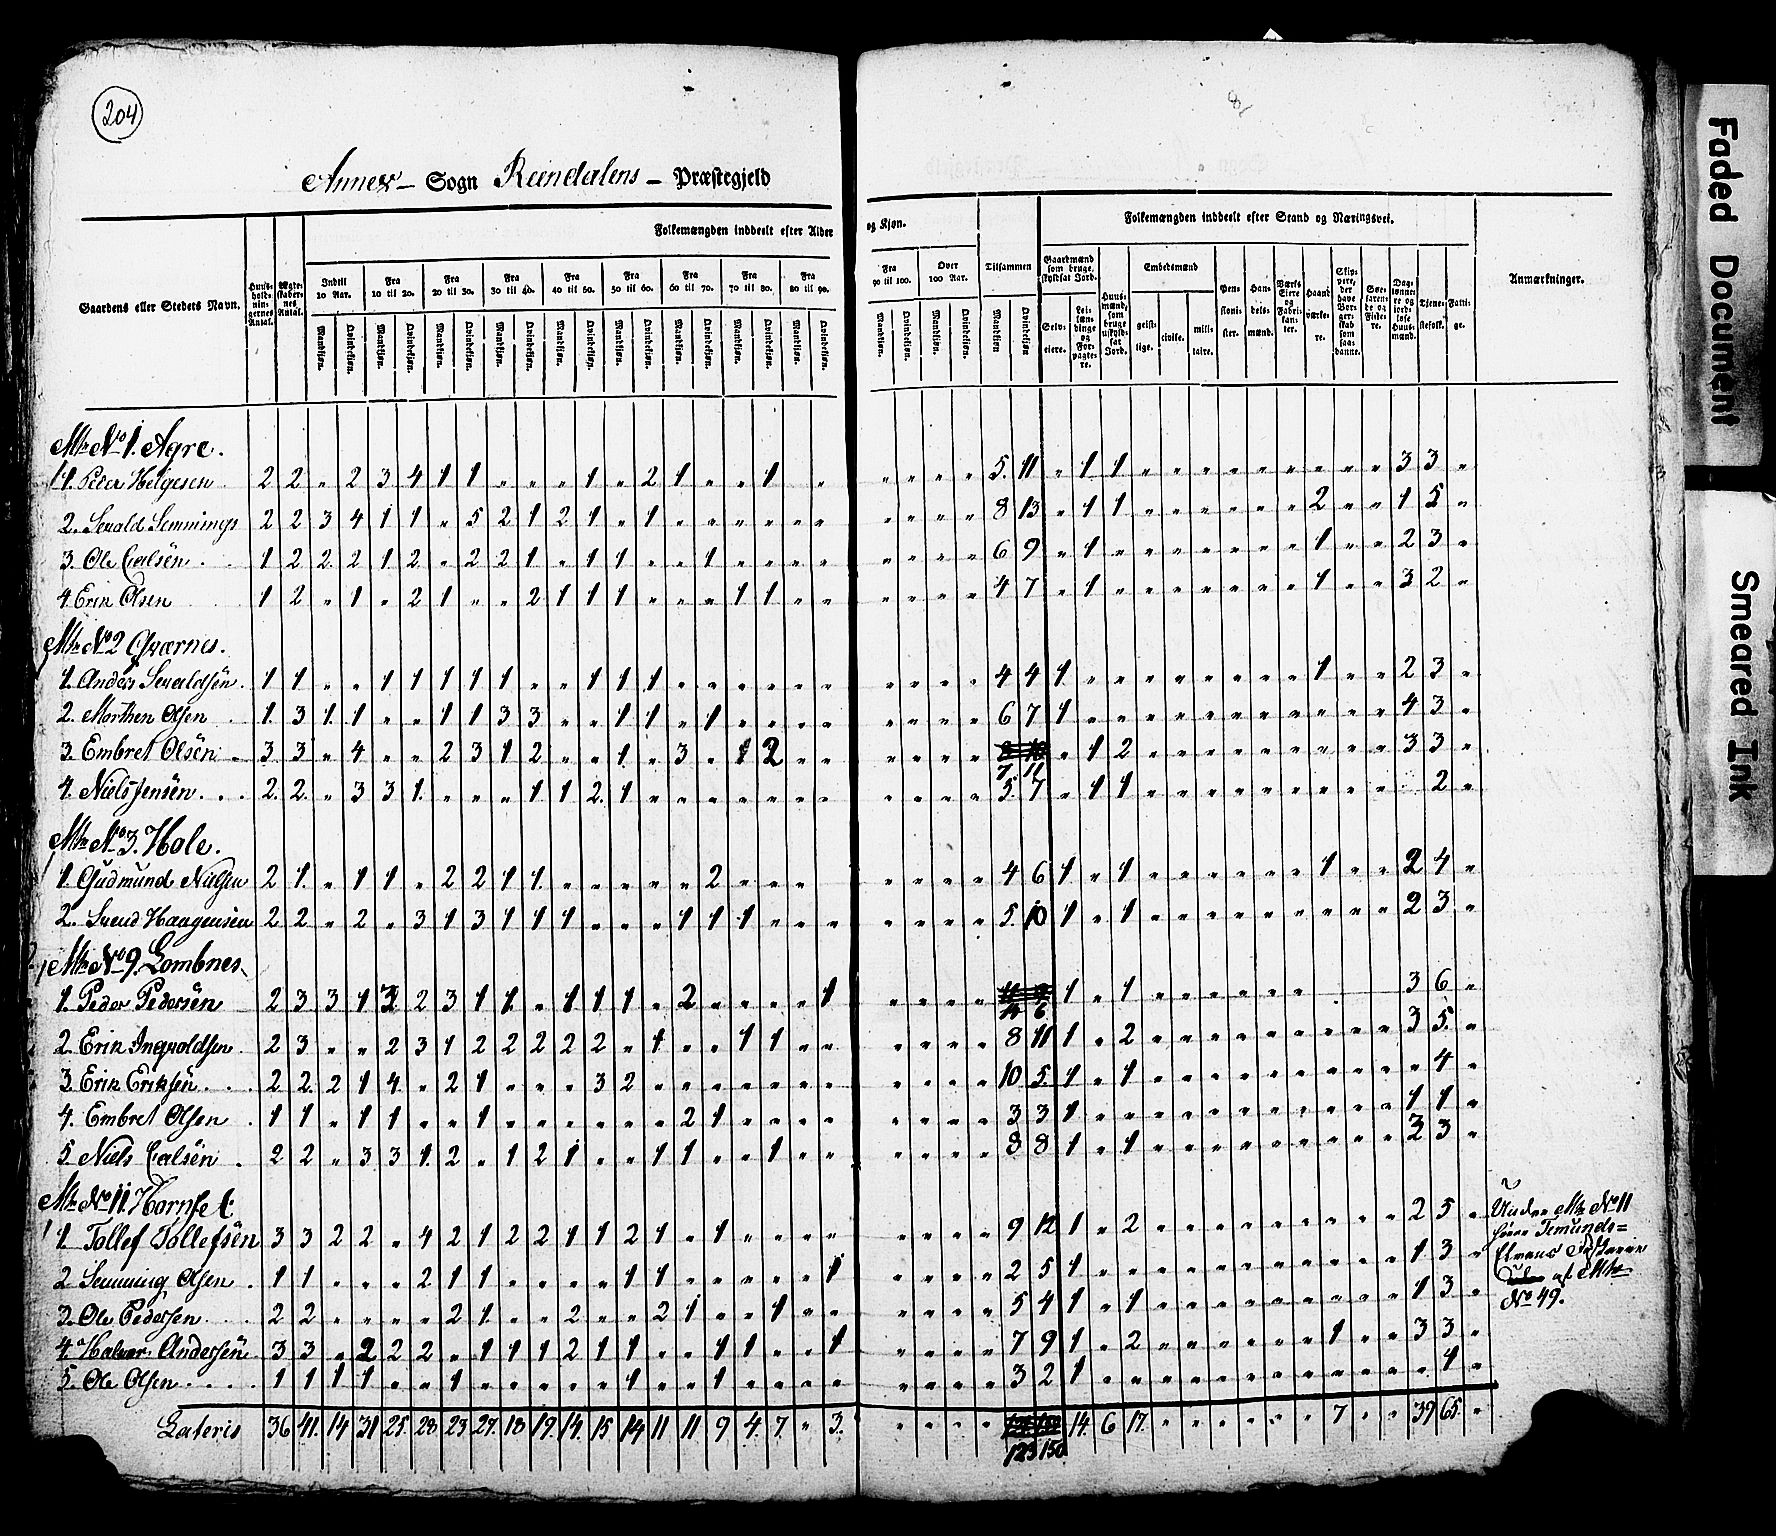 204
8
Annex – Sogn Reendalens – Præstegjeld
Folkemængden inddeelt efter Alder og Kjøn.
Folkemængden inddeelt efter Stand og Næringsvei.
Gaardens eller Stedets Navn. Huusholdningernes Antal. Ægteskabernes Antal. Indtil 10 Aar. Fra 10 til 20. Fra 20 til 30. Fra 30 til 40. Fra 40 til 50. Fra 50 til 60. Fra 60 til 70. Fra 70 til 80. Fra 80 til 90. Fra 90 til 100. Over 100 Aar. Tilsammen
Mandkjøn. Qvindekjøn.
Gaardmænd som bruge skyldsat Jord. Selveiere. Leilændinge og Forpagtere. Huusmænd, som bruge uskyldsat Jord. Embedsmænd geistlige. civile. militaire. Pensionister. Handelsmænd. Værks Eiere og Fabrikanter. Haandværkere. Skippere, der have Borgerskab som saadanne. Søefarende og Fiskere. Daglønnere og jordløse Huusmænd. Tjenestefolk. Fattige. Anmærkninger.
Mtr No 1. Agre.
1. Peder Helgesen 2 2 „ 2 3 4 1 1 „ „ „ 1 „ 2 1 „ „ 1 „ „ „ „ „ 5. 11 „ 1 1 „ „ „ „ „ „ „ „ „ 3 3 „
2. Sevald Semmings 2 2 3 4 1 1 „ 5 2 1 2 1 „ 1 „ „ „ „ „ „ „ „ „ „ 8 13 „ 1 1 „ „ „ „ „ „ 2 „ „ 1 5 „
3. Ole Carlsen 1 2 2 2 1 2 „ 2 2 1 „ 1 1 „ „ 1 „ „ „ „ „ „ „ „ 6 9 „ 1 „ „ „ „ „ „ „ 1 „ „ 2 3 „
4 Erik Olsen 1 2 „ 1 „ 2 1 „ „ 2 1 1 1 „ „ „ 1 1 „ „ „ „ „ „ 4 7 „ 1 „ „ „ „ „ „ „ 1 „ „ 3 2 „
Mtr No 2 Qværnes.
1. Anders Sevaldsen 1 1 „ „ 1 1 1 1 1 „ „ 1 1 1 „ „ „ „ „ „ „ „ „ „ 4 4 1 „ „ „ „ „ „ „ „ 1 „ „ 2 3 „
2. Morthen Olsen 1. 3 1. 1 „ „ 1 1 3 3 „ „ 1 1 „ 1 „ „ „ „ „ „ „ „ 6 7 1 „ „ „ „ „ „ „ „ „ „ „ 4 3 „
3. Embret Olsen 3 3 „ 4 „ „ 2 3 1 2 „ „ 1 „ 3 „ 1 2 „ „ „ „ „ „ 7 11 „ 1 2 „ „ „ „ „ „ „ „ „ 3 3 „
4. Niels Jensen 2. 2. „ 3 3 1. „ „ „ 1 1 2. 1 „ „ „ „ „ „ „ „ „ „ 5 7 „ 1 1 „ „ „ „ „ „ „ „ „ 2 „
Mtr No 3. Hole.
1. Gudmund Nielsen 2 1. „ 1 1 „ 2 2 1 1. „ „ „ „ „ 2 „ „ „ „ „ „ „ 4 6 1 „ 1 „ „ „ „ „ „ 1 „ „ 2 4 „
2. Svend Haagensen 2 2 „ 2 „ 3 1 3 1 1 1 „ „ „ 1 1 1 „ „ „ „ „ „ „ 5. 10 1 „ 1 „ „ „ „ „ „ „ „ „ 2 3 „
Mtr No 9. Lombnes
1. Peder Pedersen 2 3 3 1 3 2 3 1 1. „ 1 1 1 „ 2 „ „ „ „ 1 „ „ „ „ 14 6 1 „ 1 „ „ „ „ „ „ 3 6 „
2. Erik Ingvoldsen 2 3 „ „ 2 3 1 2 2 2 2 2 „ 1 „ „ 1 1 „ „ „ „ „ „ 8 11 1 „ 2 „ „ „ „ „ „ „ „ „ 3 5. „
3. Erik Eriksen 2 2. 2 1 4 „ 2 1 „ „ „ 3 2 „ „ „ „ „ „ „ „ „ „ „ 10 5. 1 „ 1 „ „ „ „ „ „ „ „ „ „ 4 „
4. Embret Olsen 1 1 „ 1 1 „ „ 1 „ „ „ „ „ „ 2 1 „ „ „ „ „ „ „ „ 3 3 1 „ „ „ „ „ „ „ „ „ „ „ 1 1 „
5 Niels Carlsen 2 2 „ 3 3 1. 2 „ 1 2 1 „ „ 1 1 „ „ 1 „ „ „ „ „ „ 8 8 1 „ 1 „ „ „ „ „ „ „ „ „ 2 3 „
Mtr No 11. Hornset.
1 Tollef Tollefsen 3 3 2 2 „ 4 2 1 2 2 1 1 2 1 „ 1 „ „ „ „ „ „ „ „ 9 12 1 „ 2 „ „ „ „ „ „ „ „ „ 2 5 „
2 Semming Olsen 1 1 „ „ „ 2 1 1 „ „ „ „ 1 1 „ „ „ „ „ 1 „ „ „ „ 2 5 1 „ „ „ „ „ „ „ „ „ „ „ 1 3 „
3. Ole Pedersen 2 2 „ „ „ „ 2 1 „ „ 2 „ „ 2 1 „ „ 1 „ „ „ „ „ „ 5 4 1 „ 1 „ „ „ „ „ „ „ „ „ 1 3 „
4. Halvor Andersen 3 3 „ 2 2 2 „ 1 1 1 2 1 1 „ „ 1 1 „ „ 1 „ „ „ „ 7 9 1 „ 2 „ „ „ „ „ „ 1 „ „ 3 3 „
5. Ole Olsen 1 1 1 1 „ „ 1 „ „ „ „ „ 1 „ „ 1 „ „ „ „ „ „ „ „ 3 2 1 „ „ „ „ „ „ „ „ „ „ „ „ 1 „
Under Mtr No 11
hører
af Mtr
No 49.
Lateris 36 41. 14 31 25. 28 23 27. 18 19. 14. 15 14 11 11 9 4. 7 „ 3. „ „ „ „ 14. 6 17. „ „ „ „ „ „ 7 „ „ 39 65. „
123 150
Faded Document
Smeared Ink